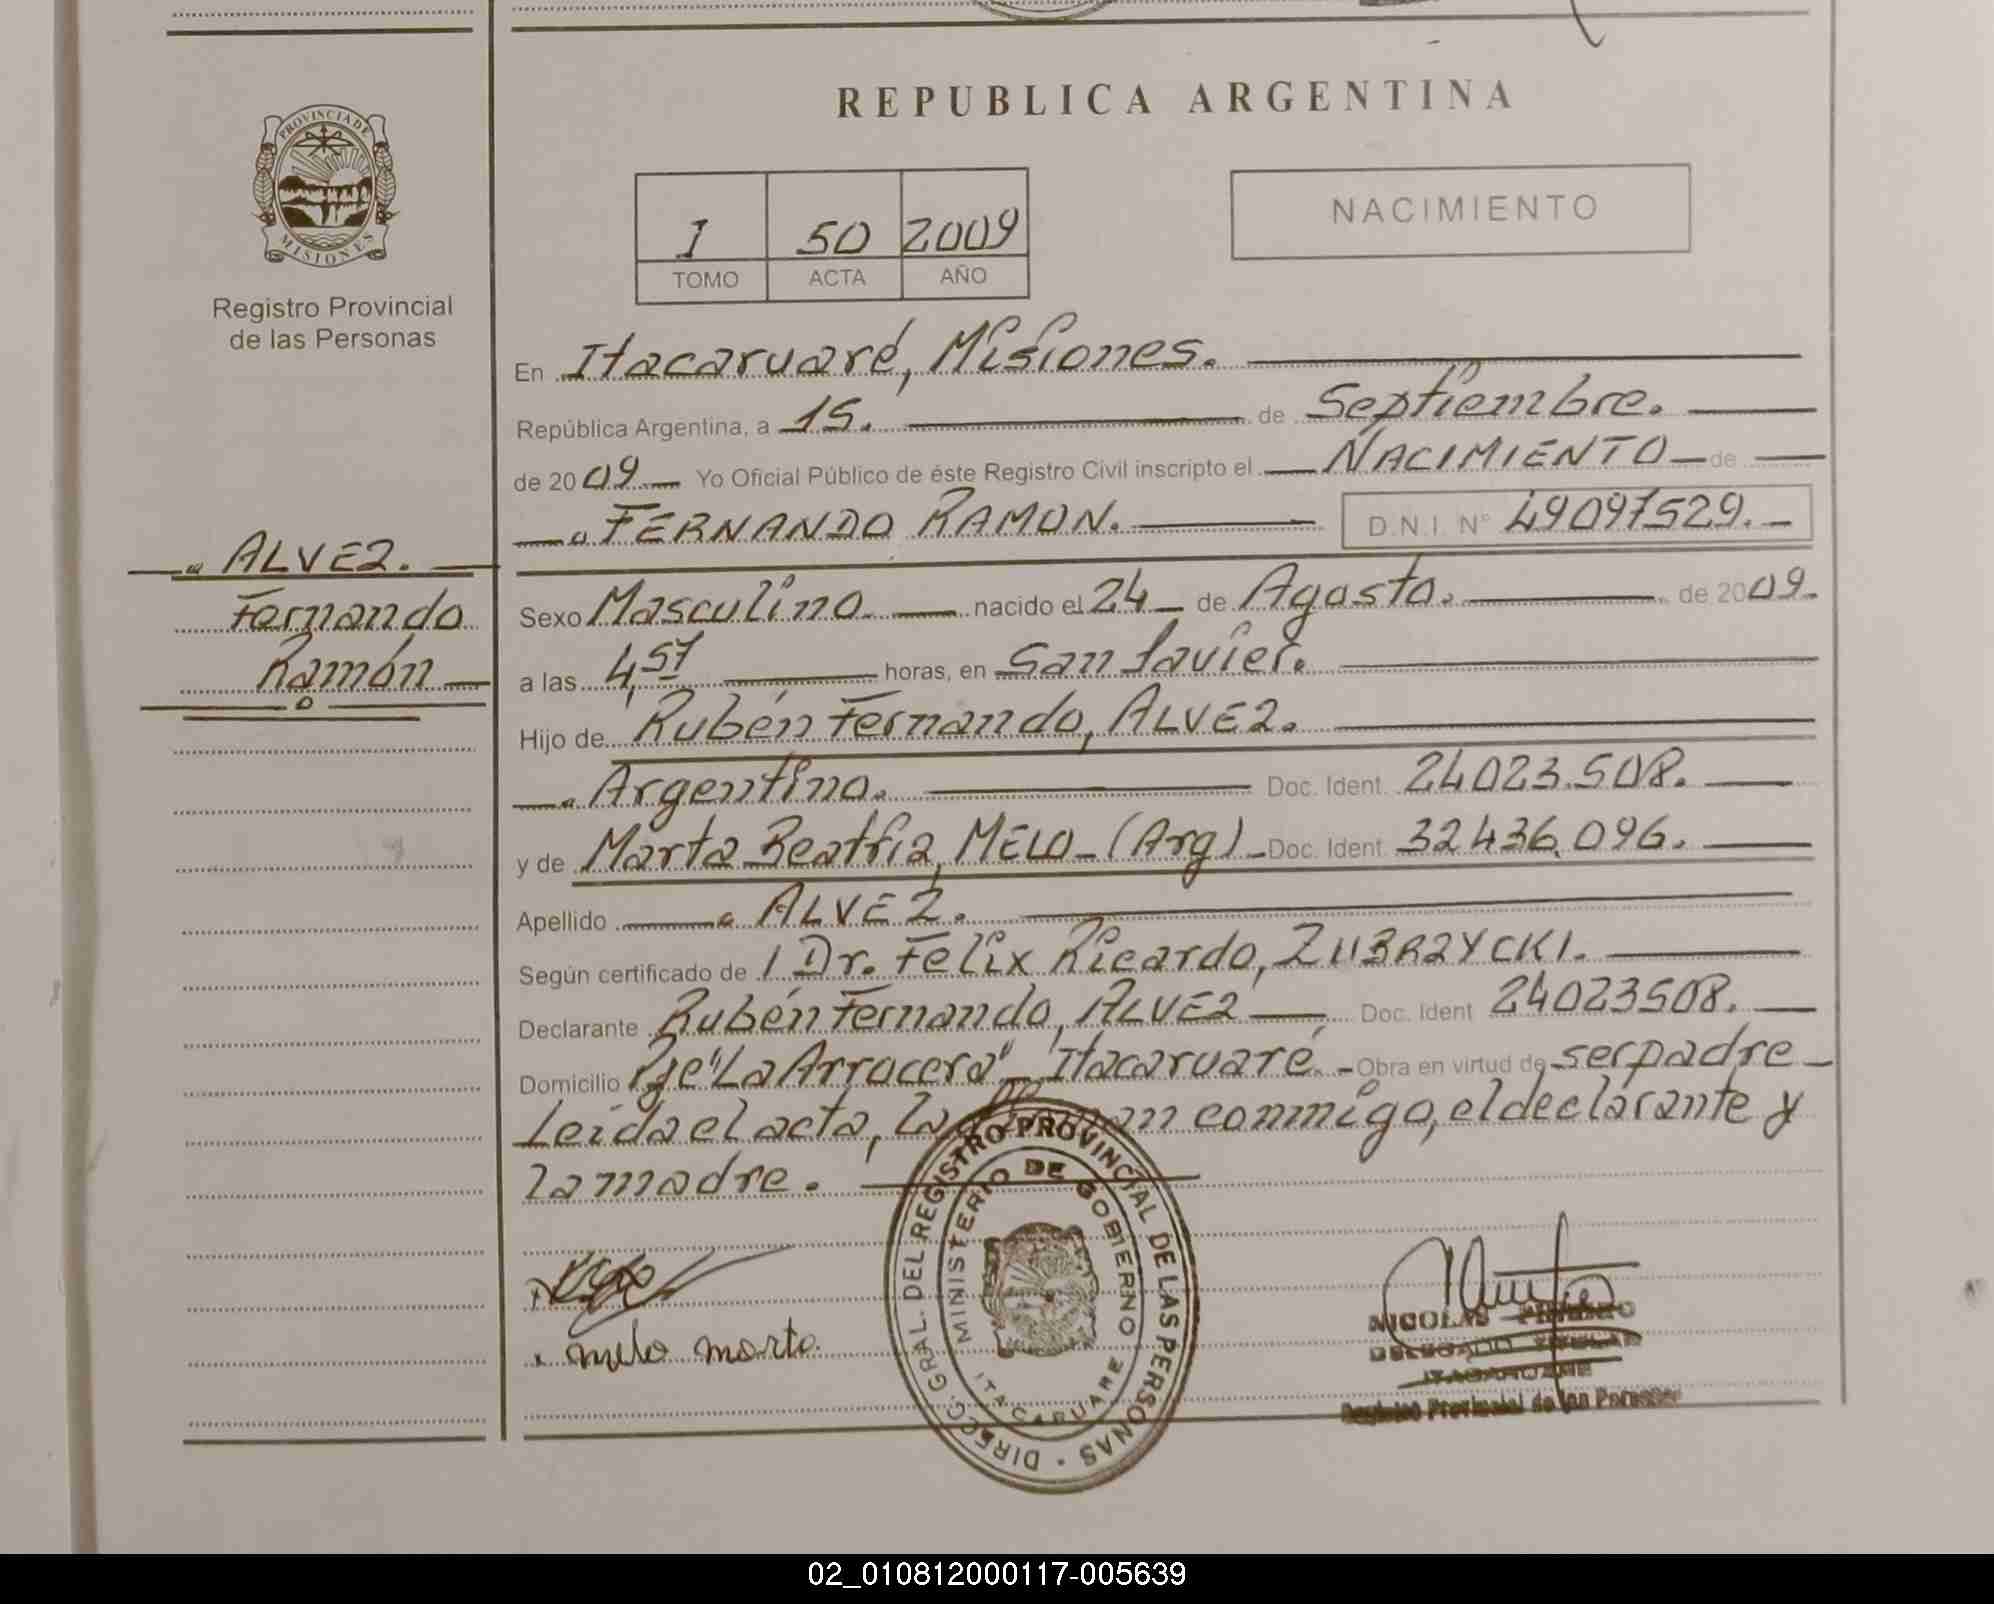 REPUBLICA ARGENTINA
PROVINCIA DE
MISIONES
Registro Provincial
de las Personas
I 50 2009
TOMO ACTA AÑO
NACIMIENTO
En Itacaruaré, Misiones.
República Argentina, a 15. de Septiembre.
de 2009 Yo Oficial Público de éste Registro Civil inscripto el NACIMIENTO de
FERNANDO RAMON. D.N.I. N° 49097529.
ALVEZ.
Fernando
Ramón
Sexo Masculino nacido el 24 de Agosto. de 2009.
a las 4,57 horas, en San Javier.
Hijo de Rubén Fernando, ALVEZ.
Argentino. Doc. Ident. 24023.508.
y de Marta Beatriz, MELO - (Arg) - Doc. Ident. 32436.096.
Apellido ALVEZ.
Según certificado de / Dr. Felix Ricardo, ZUBRZYCKI.
Declarante Rubén Fernando, ALVEZ Doc. Ident 24023508.
Domicilio Pje "La Arrocera" Itacaruaré. - Obra en virtud de ser padre
Leída el acta, la firman conmigo, el declarante y
la madre.
DIRECC. GRAL. DEL REGISTRO PROVINCIAL DE LAS PERSONAS
MINISTERIO DE GOBIERNO
ITACARUARE
melo marta.
NICOLAS
DELEGADO TITULAR
ITACARUARE
Registro Provincial de las Personas
02_010812000117-005639